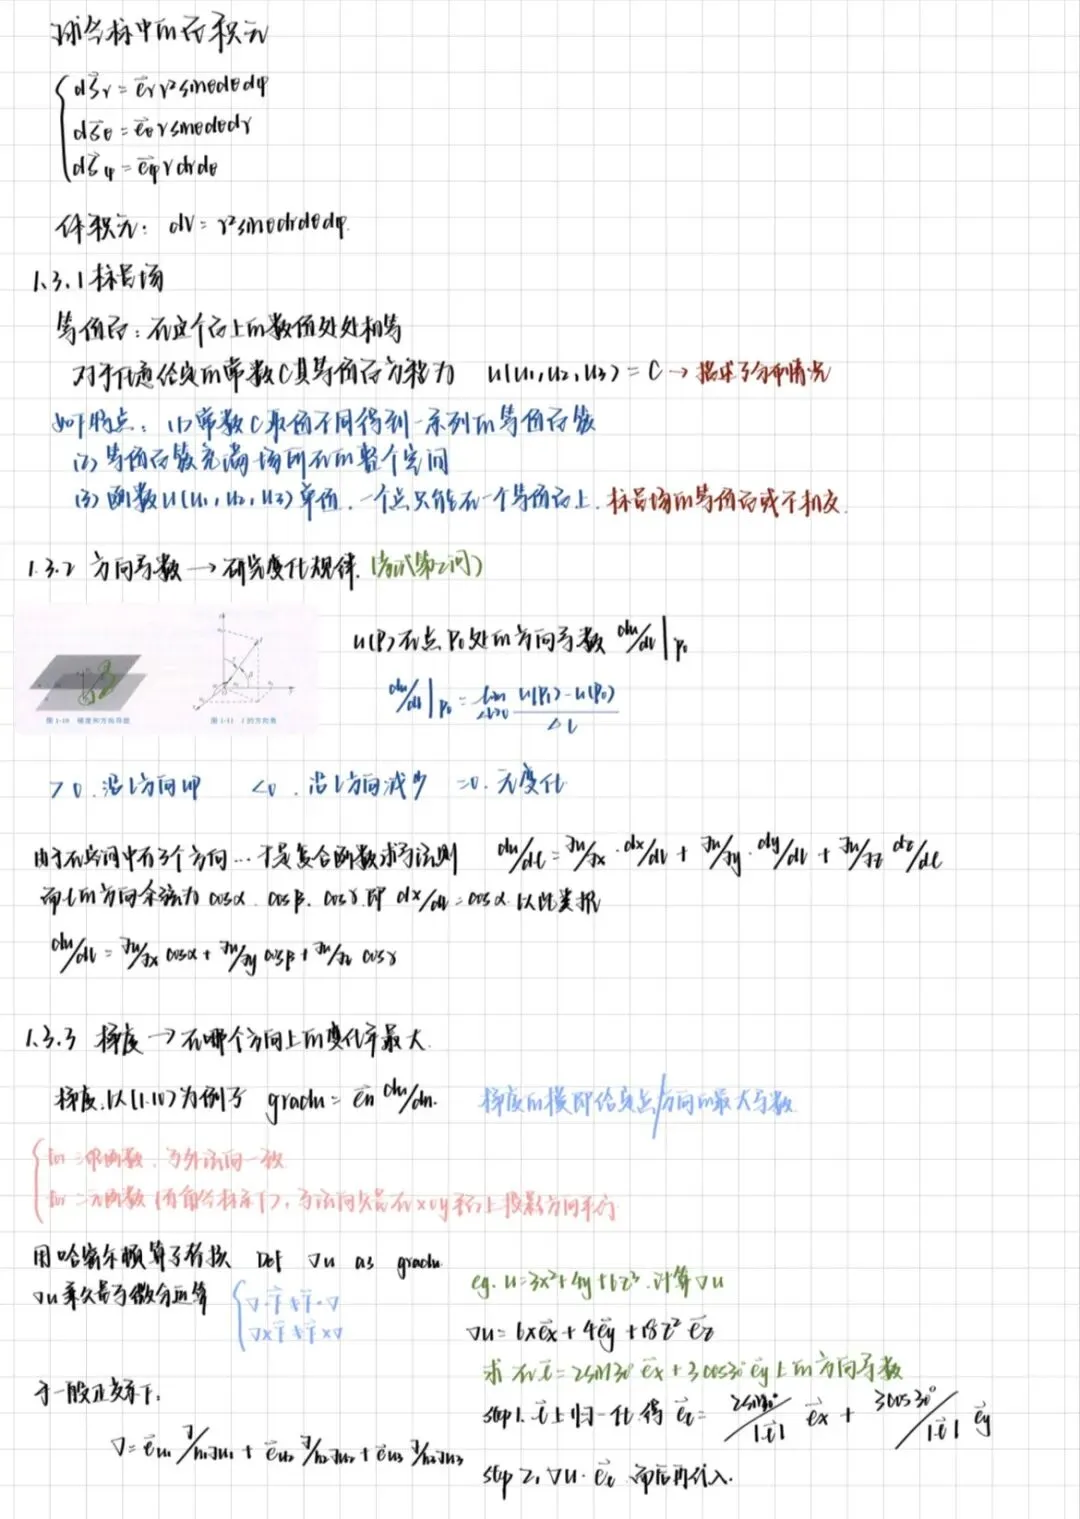 球坐标中的面积元
dS⃗r = e⃗r r²sinθdθdφ
dS⃗θ = e⃗θ r sinθdθdr
dS⃗φ = e⃗φ r dr dθ
体积元: dV = r²sinθdrdθdφ.
1.3.1 标量场
等值面：在这个面上的数值处处相等
对于任意给定的常数C其等值面方程为 u(u₁,u₂,u₃) = C → 描述了分布情况
如下特点：(1) 常数C取值不同得到一系列的等值面簇
(2) 等值面簇充满场所在的整个空间
(3) 函数u(u₁,u₂,u₃)单值. 一个点只能在一个等值面上. 标量场的等值面或不相交.
1.3.2 方向导数 → 研究变化规律. (考试第2问)
图1-10 梯度和方向导数
图1-11 l 的方向角
u(P)在点P₀处的方向导数 du/dl|P₀
du/dl|P₀ = lim Δl→0 (u(P₁)-u(P₀))/Δl
>0. 沿l方向 <0. 沿l方向减少 =0. 无变化
由于在空间中有3个方向…于是复合函数求导法则 du/dl = ∂u/∂x · dx/dl + ∂u/∂y · dy/dl + ∂u/∂z dz/dl
而l的方向余弦为 cosα. cosβ. cosγ. 即 dx/dl = cosα. 以此类推
du/dl = ∂u/∂x cosα + ∂u/∂y cosβ + ∂u/∂z cosγ
1.3.3 梯度 → 在哪个方向上的变化率最大.
梯度.以(1.10)为例子 gradu = e⃗n du/dn. 梯度的模即给定点/方向的最大导数
for 三元函数. 与外法向一致
for 二元函数 (直角坐标系下), 与法向矢量在xoy平面上投影方向平行
用哈密尔顿算子替换 Def ∇u as gradu.
∇u 兼矢量与微分运算
∇·F⃗ ≠ F⃗·∇
∇×F⃗ ≠ F⃗×∇
eg. u=3x²+4y+6z³. 计算∇u
∇u = 6xe⃗x + 4e⃗y + 18z² e⃗z
求 在 l⃗ = 2sin30° e⃗x + 3cos30° e⃗y 上的方向导数
step1. l⃗ 上归一化 得 e⃗l = 2sin30°/|l⃗| e⃗x + 3cos30°/|l⃗| e⃗y
step 2. ∇u · e⃗l 而后再代入.
于一般正交系下:
∇ = e⃗u₁ ∂/h₁∂u₁ + e⃗u₂ ∂/h₂∂u₂ + e⃗u₃ ∂/h₃∂u₃